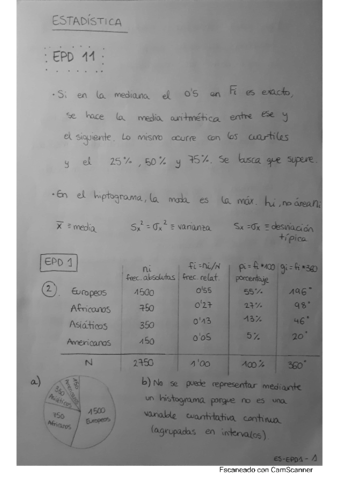 ESTADÍSTICA
EPD 11
· Si en la mediana el 0'5 en Fi es exacto,
se hace la media aritmética entre ese y
el siguiente. Lo mismo ocurre con los cuartiles
y el 25%, 50% y 75%. Se busca que supere.
· En el histograma, la moda es la más hi, no área
x̄ ≡ media Sx² = σx² ≡ varianza Sx = σx ≡ desviación
típica
EPD 1
ni fi = ni/N pi = fi*100 gi = fi*360
frec. absolutas frec. relat. porcentaje
2. Europeos 1500 0'55 55% 196°
Africanos 750 0'27 27% 98°
Asiáticos 350 0'13 13% 46°
Americanos 150 0'05 5% 20°
N 2750 1'00 100% 360°
a)
1500
Europeos
750
Africanos
350
Asiáticos
b) No se puede representar mediante
un histograma porque no es una
variable cuantitativa continua
(agrupadas en intervalos)
ES-EPD1-1
Escaneado con CamScanner